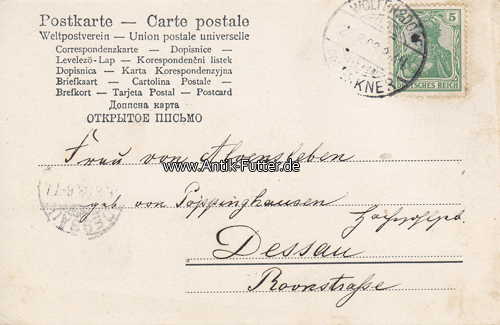 Postkarte — Carte postale
Weltpostverein — Union postale universelle
Correspondenzkarte — Dopisnice —
Levelező-Lap — Korespondenční listek
Dopisnica — Karta Korespondenzyjna
Briefkaart — Cartolina Postale —
Brefkort — Tarjeta Postal — Postcard
Дописна карта
ОТКРЫТОЕ ПІСЬМО
5
DEUTSCHES REICH
KNER
Frau von Alvensleben
www.Antik-Futter.de
geb von Poppinghausen
Dessau
Roonstraße
DESSAU